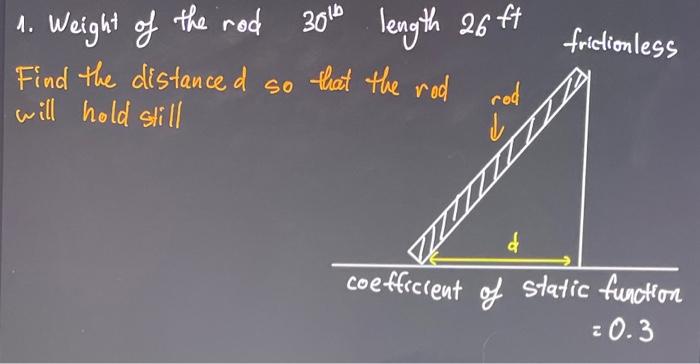 1. Weight of the rod 30 lb length 26 ft
frictionless
Find the distance d so that the rod
will hold still
rod
d
coefficient of static function
= 0.3